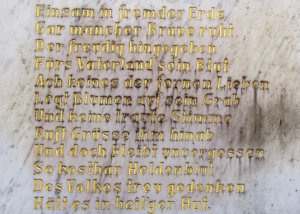 Einsam in fremder Erde
Gar mancher Brave ruht
Der freudig hingegeben
Fürs Vaterland sein Blut
Ach keines der fernen Lieben
Legt Blumen auf sein Grab
Und keine traute Stimme
Ruft Grüsse ihm hinab
Und doch bleibt unvergessen
So kostbar Heldenblut
Des Volkes treu gedenken
Hält es in heil'ger Hut.